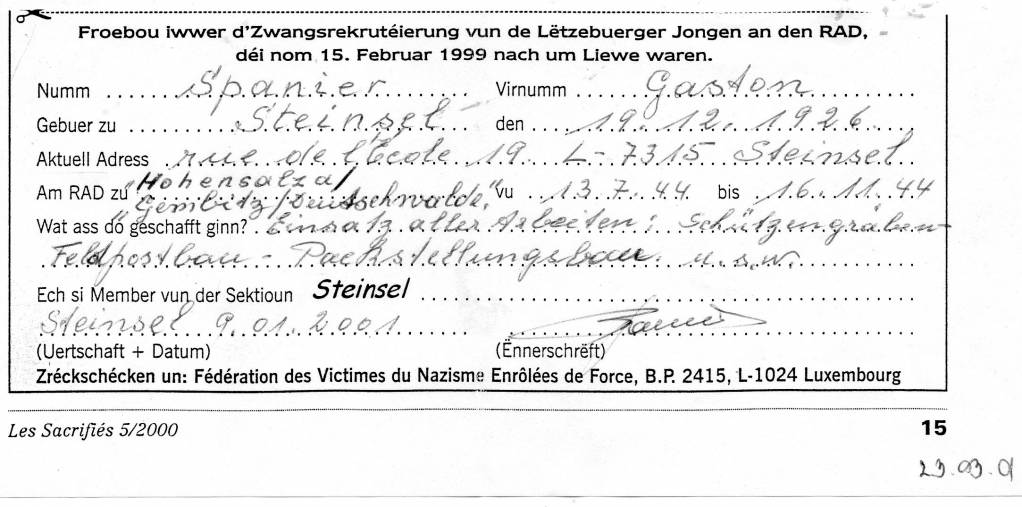 Froebou iwwer d'Zwangsrekrutéierung vun de Lëtzebuerger Jongen an den RAD,
déi nom 15. Februar 1999 nach um Liewe waren.
Numm Spanier Virnumm Gaston
Gebuer zu Steinsel den 19.12.1926
Aktuell Adress rue de l'Ecole 19 L-7315 Steinsel
Am RAD zu "Hohensalza/
"Gembitz/Deutschwalde" vu 13.7.44 bis 16.11.44
Wat ass do geschafft ginn? Einsatz aller Arbeiten: Schützengräben-
Feldpostbau - Packstellungsbau u.s.w.
Ech si Member vun der Sektioun Steinsel
Steinsel 9.01.2001
(Uertschaft + Datum) (Ënnerschrëft)
Zréckschécken un: Fédération des Victimes du Nazisme Enrôlées de Force, B.P. 2415, L-1024 Luxembourg
Les Sacrifiés 5/2000 15
23.03.01